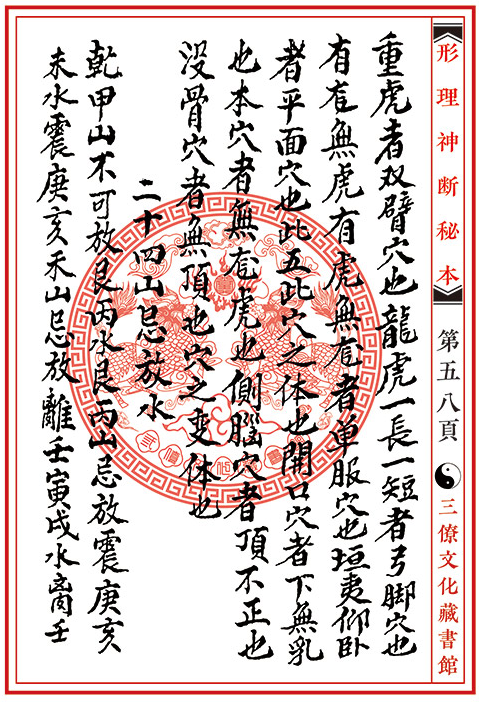 《形理神断秘本》
第五八頁
三僚文化藏書館
重虎者双臂穴也龍虎一長一短者弓脚穴也
有龙無虎有虎無龙者单服穴也垣夷仰卧
者平面穴也此五此穴之体也開口穴者下無乳
也本穴者無龙虎也側腦穴者頂不正也
没骨穴者無頂也穴之变体也
二十四山忌放水
乾甲山不可放艮丙水艮丙山忌放震庚亥
未水震庚亥禾山忌放離壬寅戌水離壬